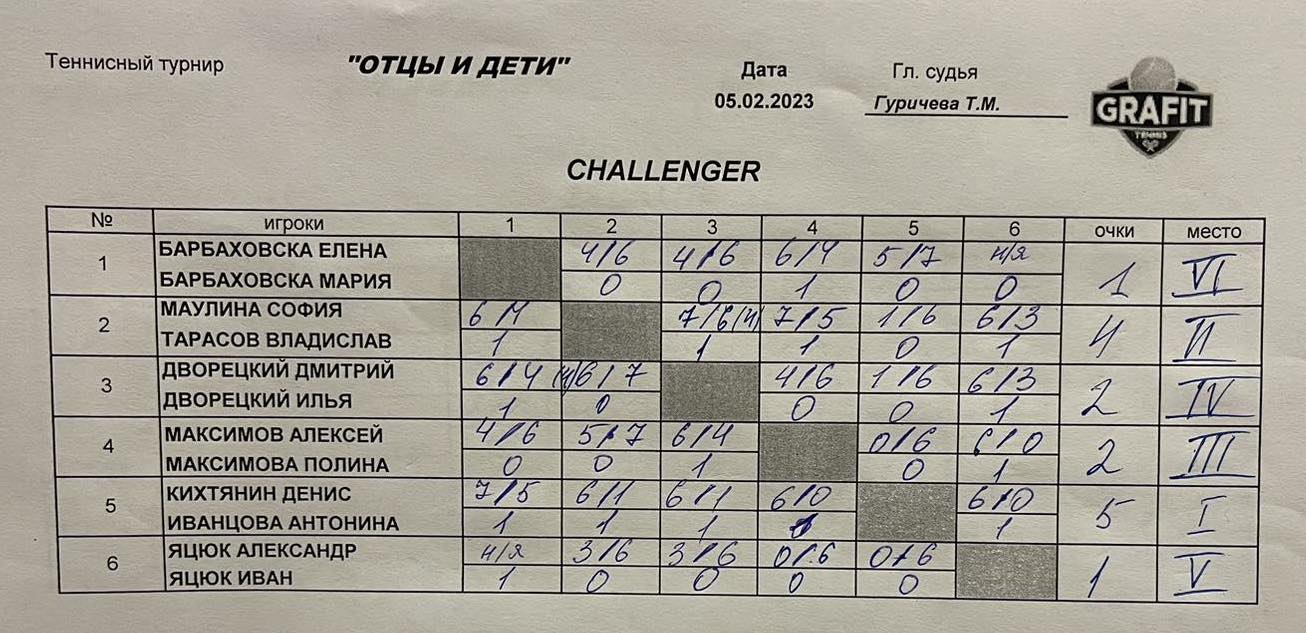 Теннисный турнир "ОТЦЫ И ДЕТИ" Дата Гл. судья
05.02.2023 Гуричева Т.М.
GRAFIT
TENNIS
CHALLENGER
№ игроки 1 2 3 4 5 6 очки место
1 БАРБАХОВСКА ЕЛЕНА 4/6 4/6 6/4 5/7 н/я 1 VI
БАРБАХОВСКА МАРИЯ 0 0 1 0 0
2 МАУЛИНА СОФИЯ 6/4 7/6(4) 7/5 1/6 6/3 4 II
ТАРАСОВ ВЛАДИСЛАВ 1 1 1 0 1
3 ДВОРЕЦКИЙ ДМИТРИЙ 6/4 (4)6/7 4/6 1/6 6/3 2 IV
ДВОРЕЦКИЙ ИЛЬЯ 1 0 0 0 1
4 МАКСИМОВ АЛЕКСЕЙ 4/6 5/7 6/4 0/6 6/0 2 III
МАКСИМОВА ПОЛИНА 0 0 1 0 1
5 КИХТЯНИН ДЕНИС 7/5 6/1 6/1 6/0 6/0 5 I
ИВАНЦОВА АНТОНИНА 1 1 1 1 1
6 ЯЦЮК АЛЕКСАНДР н/я 3/6 3/6 0/6 0/6 1 V
ЯЦЮК ИВАН 1 0 0 0 0